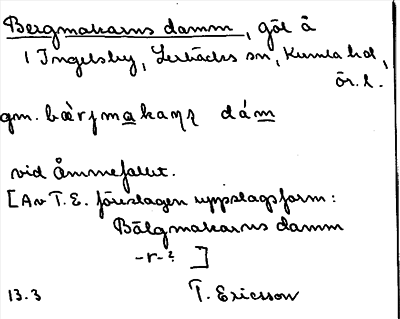 Bergmakarns damm, göl å
1 Ingelsby, Lerbäcks sn, Kumla hd,
ör. l.
gm. bæ̀rjmakaɳʂ dám
vid Åmmefallet.
[Av T.E. föreslagen uppslagsform:
Bälgmakarns damm
-r-? ]
13.3 T. Ericsson